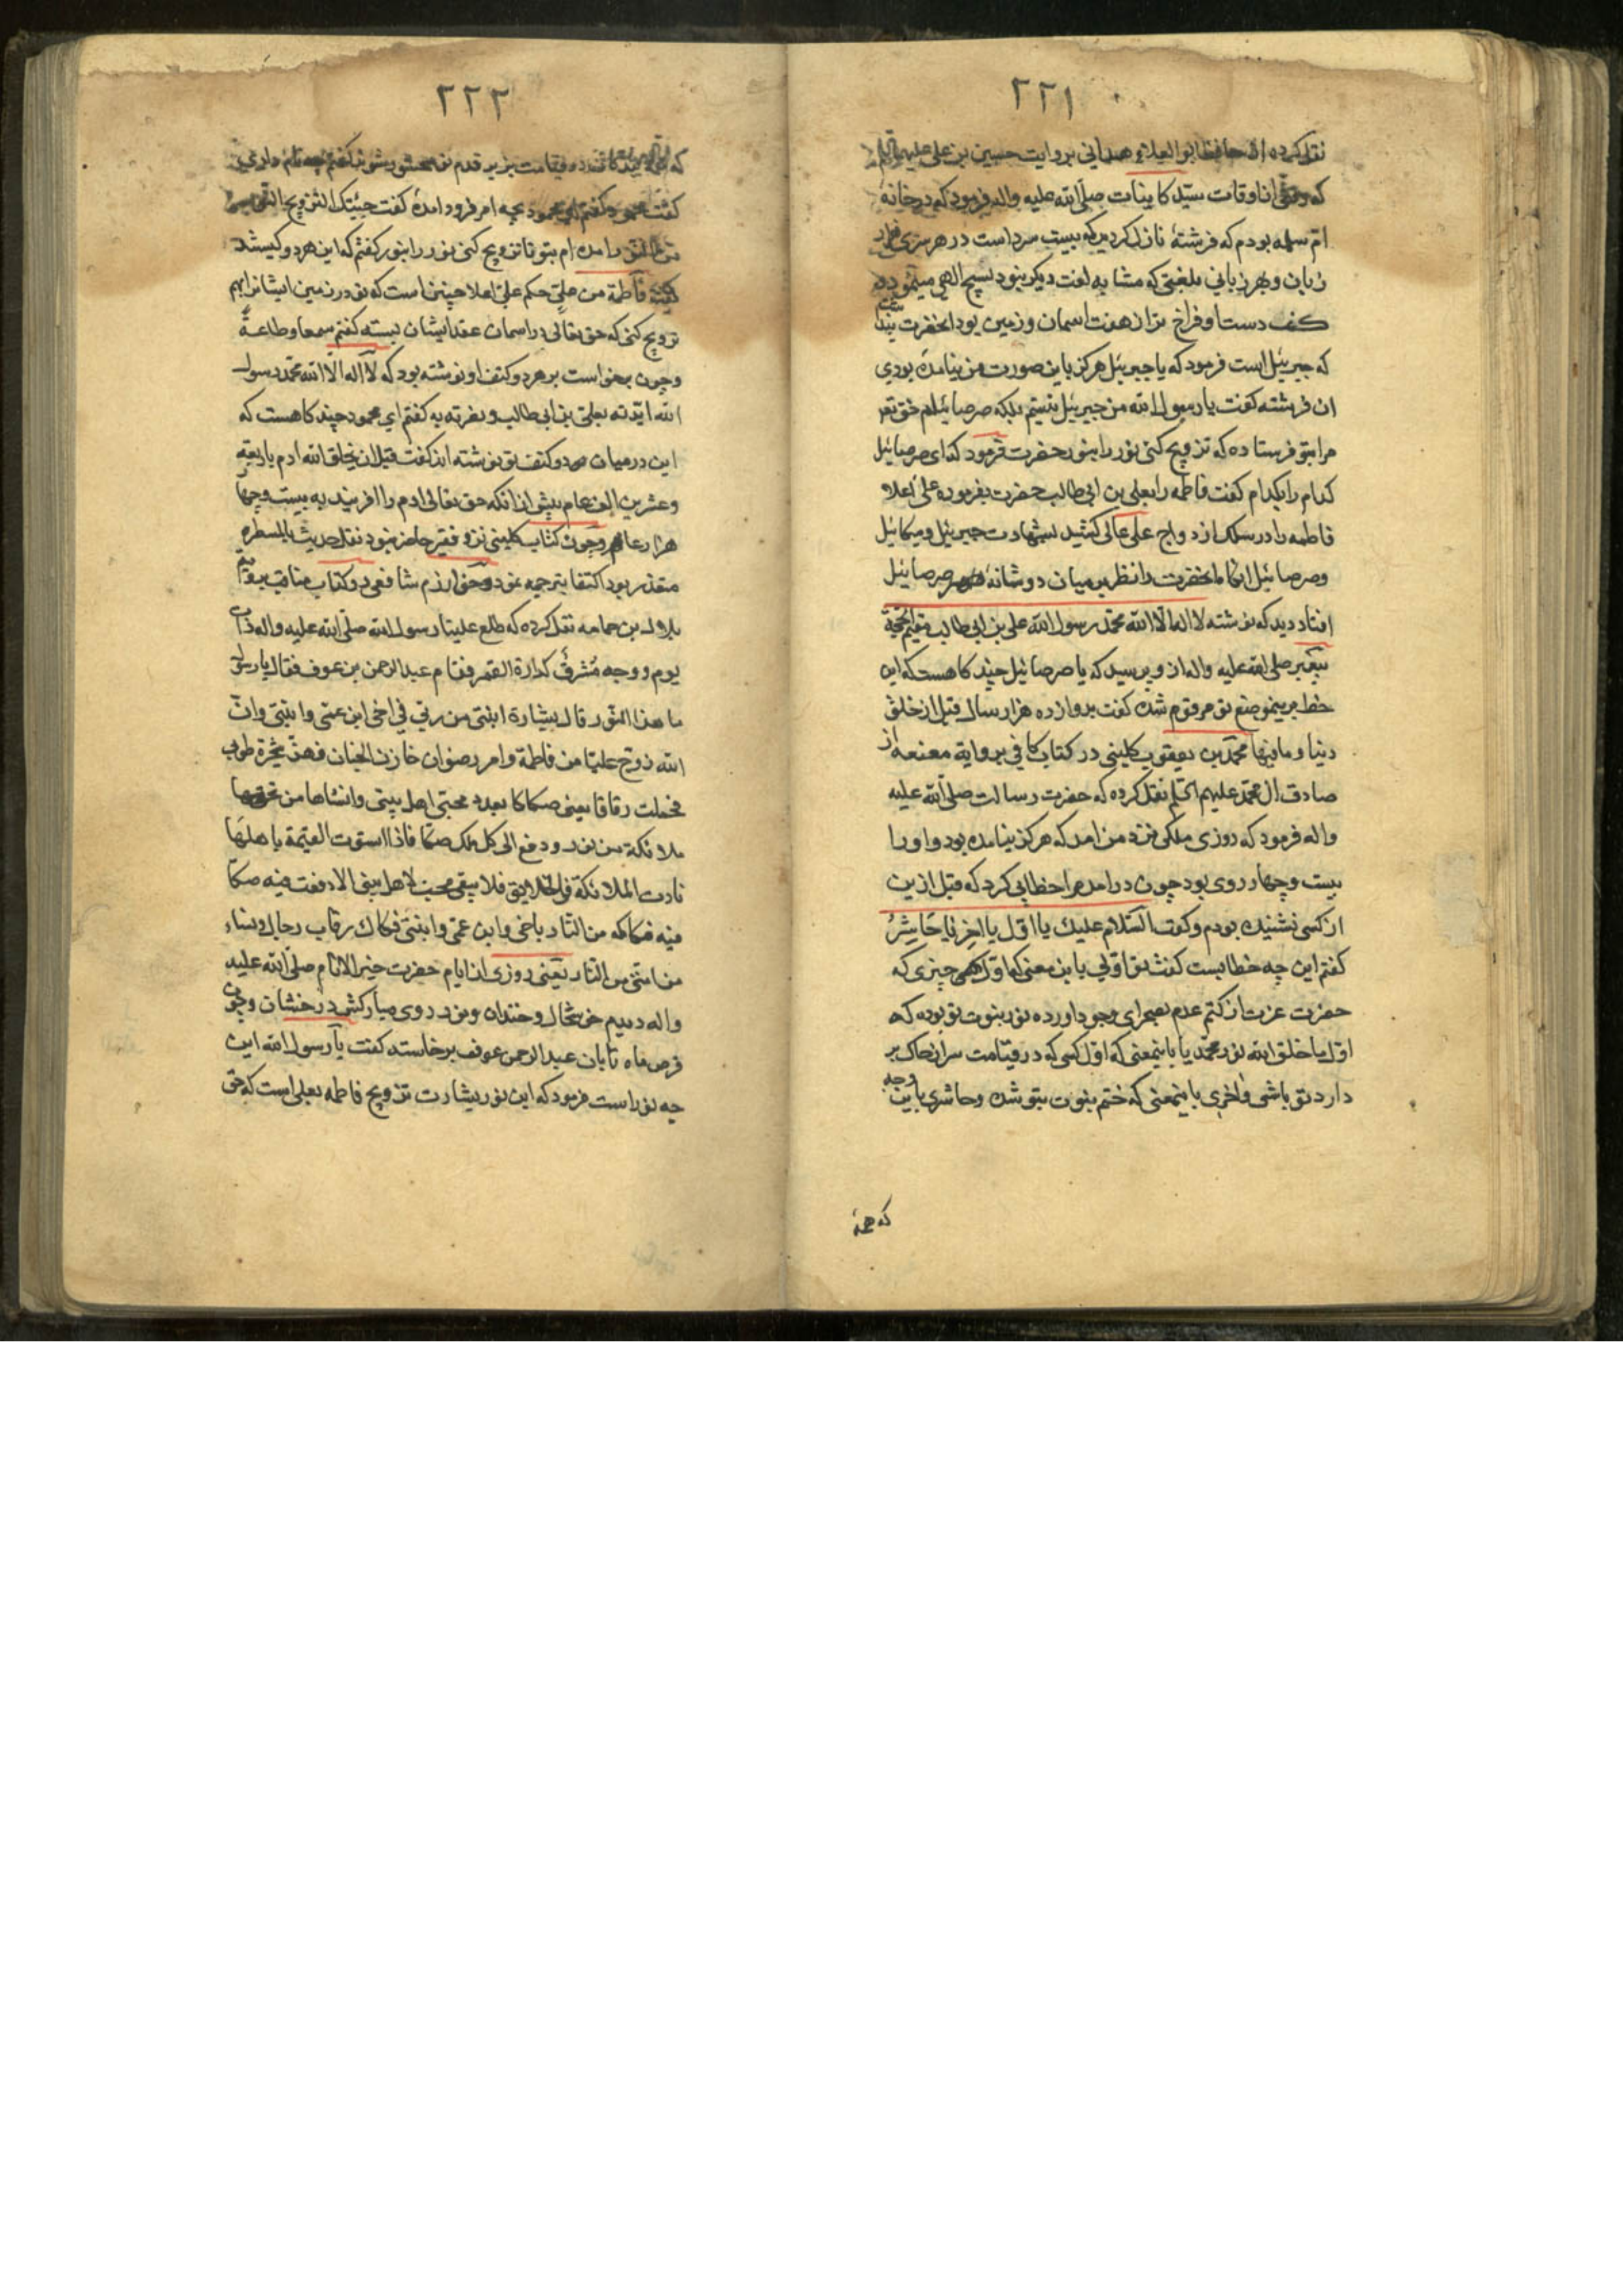 ۲۲۱
نقل کرده از حافظ ابو العلاء همدانی بروایت حسین بن علی علیهما
که وقتی از اوقات سیّد کاینات صلّی الله علیه واله فرمود که در خانهٔ
امّ سلمه بودم که فرشتهٔ نازل کردید که بیست سر داشت در هر سری هزار
زبان و بهر زبانی بلغتی که مشابه لغت دیگر نبود تسبیح الهی مینمود و
کف دست او فراخ تر از هفت اسمان و زمین بود انحضرت
که جبرئیل است فرمود که یا جبرئیل هرکز باین صورت من نیامدهٔ بودی
ان فرشته کفت یا رسول الله من جبرئیل نیستم بلکه صرصائیلم حق تع
مرا بتو فرستاده که تزویج کنی نور را بنور حضرت فرمود که ای صرصائیل
کدام را بکدام کفت فاطمه را بعلی بن ابی طالب حضرت بفرموده علیّ اعلا
فاطمه را در سلک ازدواج علی عالی کشید بشهادت جبرئیل و میکائیل
و صرصائیل انکاه انحضرت را نظر بر میان دو شانهٔ صرصائیل
افتاد دید که نوشته لا اله الّا الله محمّد رسول الله علی بن ابی طالب مقیم الحجّة
پیغمبر صلی الله علیه واله از و پرسید که یا صرصائیل چند کاهست که این
خط برینموضع تو مرقوم شده کفت بدوازده هزار سال قبل از خلق
دنیا و مافیها محمّد بن یعقوب کلینی در کتاب کافی بروایة معنعنه از
صادق ال محمّد علیهم السّلم نقل کرده که حضرت رسالت صلّی الله علیه
واله فرمود که روزی ملکی نزد من امد که هرکز نیامده بود و او را
بیست و چهار روی بود چون در امد مرا خطابی کرد که قبل ازین
از کسی نشنیده بودم و کفت السّلام علیك یا اوّل یا اخر یا حَاشِرُ
کفتم این چه خطابست کفت تو اوّلی باین معنی که اوّل چیزی که
حضرت عزت از کتم عدم بصحرای وجود اورده نور نبوت تو بوده که
اوّل ما خلق الله نور محمّد یا باینمعنی که اوّل کسی که در قیامت سر از خاک بر
دارد تو باشی و اخری باینمعنی که ختم نبوت بتو شده و حاشری باین وجه
که همهٔ
۲۲۲
که قیامت بزیر قدم تو محشور شوند کفتم چه نام داری
کفت محمود کفتم ای محمود بچه امر فرود امدهٔ کفت جئیتک التزویج النّور
امده ام بتو تا تزویج کنی نور را بنور کفتم که این هر دو کیستند
کفت فاطمة من علیّ حکم علیّ اعلا چنین است که تو در زمین ایشانرا بهم
تزویج کنی که حق تعالی در اسمان عقد ایشان بسته کفتم سمعا وطاعةً
و چون برخواست بر هر دو کتف او نوشته بود که لا اله الّا الله محمّد رسول
الله ایّدته بعلیّ بن ابی طالب ونصرته به کفتم ای محمود چند کاهست که
این در میان دو کتف تو نوشته اند کفت قبل ان یخلق الله ادم باربعة
وعشرین الف عام پیش از انکه حق تعالی ادم را افریند به بیست و چهار
هزار عام و چون کتاب کلینی نزد فقیر حاضر نبود نقل حدیث بالسطره
متعذر بود اکتفا بترجمه نمود و خوارزم شافعی در کتاب مناقب
بلال بن حمامه نقل کرده که طلع علینا رسول الله صلّی الله علیه واله ذات
یوم ووجه مُشرقٌ کدارة القمر فقام عبد الرحمن بن عوف فقال یا رسول
ما هذا النّور قال بشارة اتتنی من ربّی فی اخی ابن عمّی وابنتی وانّ
الله زوّج علیّا من فاطمة وامر رضوان خازن الجنان فهزّ شجرة طوبی
فحملت رقاقا یعنی صکاکا بعدد محبّی اهل بیتی وانشاها من تحتها
ملائکة من نور و دفع الی کل ملک صکّا فاذا استوت القیمة باهلها
نادت الملائکة فی الخلایق فلا یبقی محبّ لاهل بیتی الا دفعت فیه صکّا
فیه فکاکه من النّار باخی وابن عمّی وابنتی فکاك رقاب رجال ونساء
من امّتی من النّار یعنی روزی از ایام حضرت خیر الانام صلّی الله علیه
واله دیدم خوشحال و خندان و نور روی مبارکش درخشان و چون
قرص ماه تابان عبد الرحمن عوف برخاسته کفت یا رسول الله این
چه نور است فرمود که این نور بشارت تزویج فاطمه بعلی است که حق